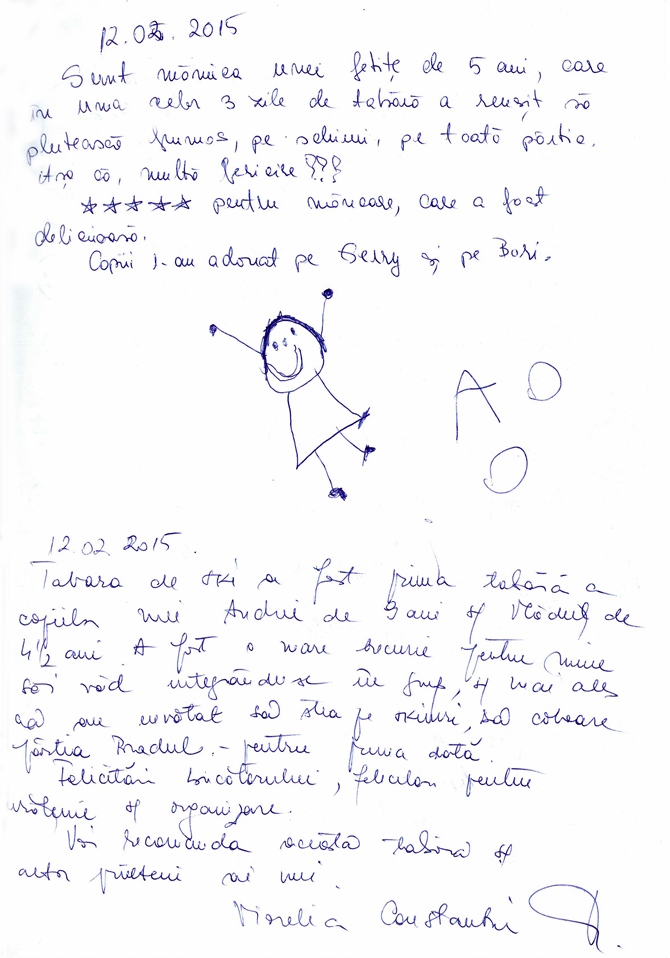 12.02.2015
Sunt mămica unei fetițe de 5 ani, care
în urma celor 3 zile de tabără a reușit să
plutească frumos, pe schiuri, pe toată pârtia.
Așa că, multă fericire!!!
★★★★★ pentru mâncare, care a fost
delicioasă.
Copiii i-au adorat pe Gerry și pe Bori.
A O
O
12.02.2015.
Tabara de ski a fost prima tabără a
copiilor mei Andrei de 9 ani și Vlăduț de
4 1/2 ani. A fost o mare bucurie pentru mine
să-i văd integrându-se în grup, și mai ales
că au învățat să stea pe skiuri, să coboare
pârtia Bradul. - pentru prima dată.
Felicitări bucătarului, felicitări pentru
curățenie și organizare.
Voi recomanda această tabără și
altor prieteni ai mei.
Constantin